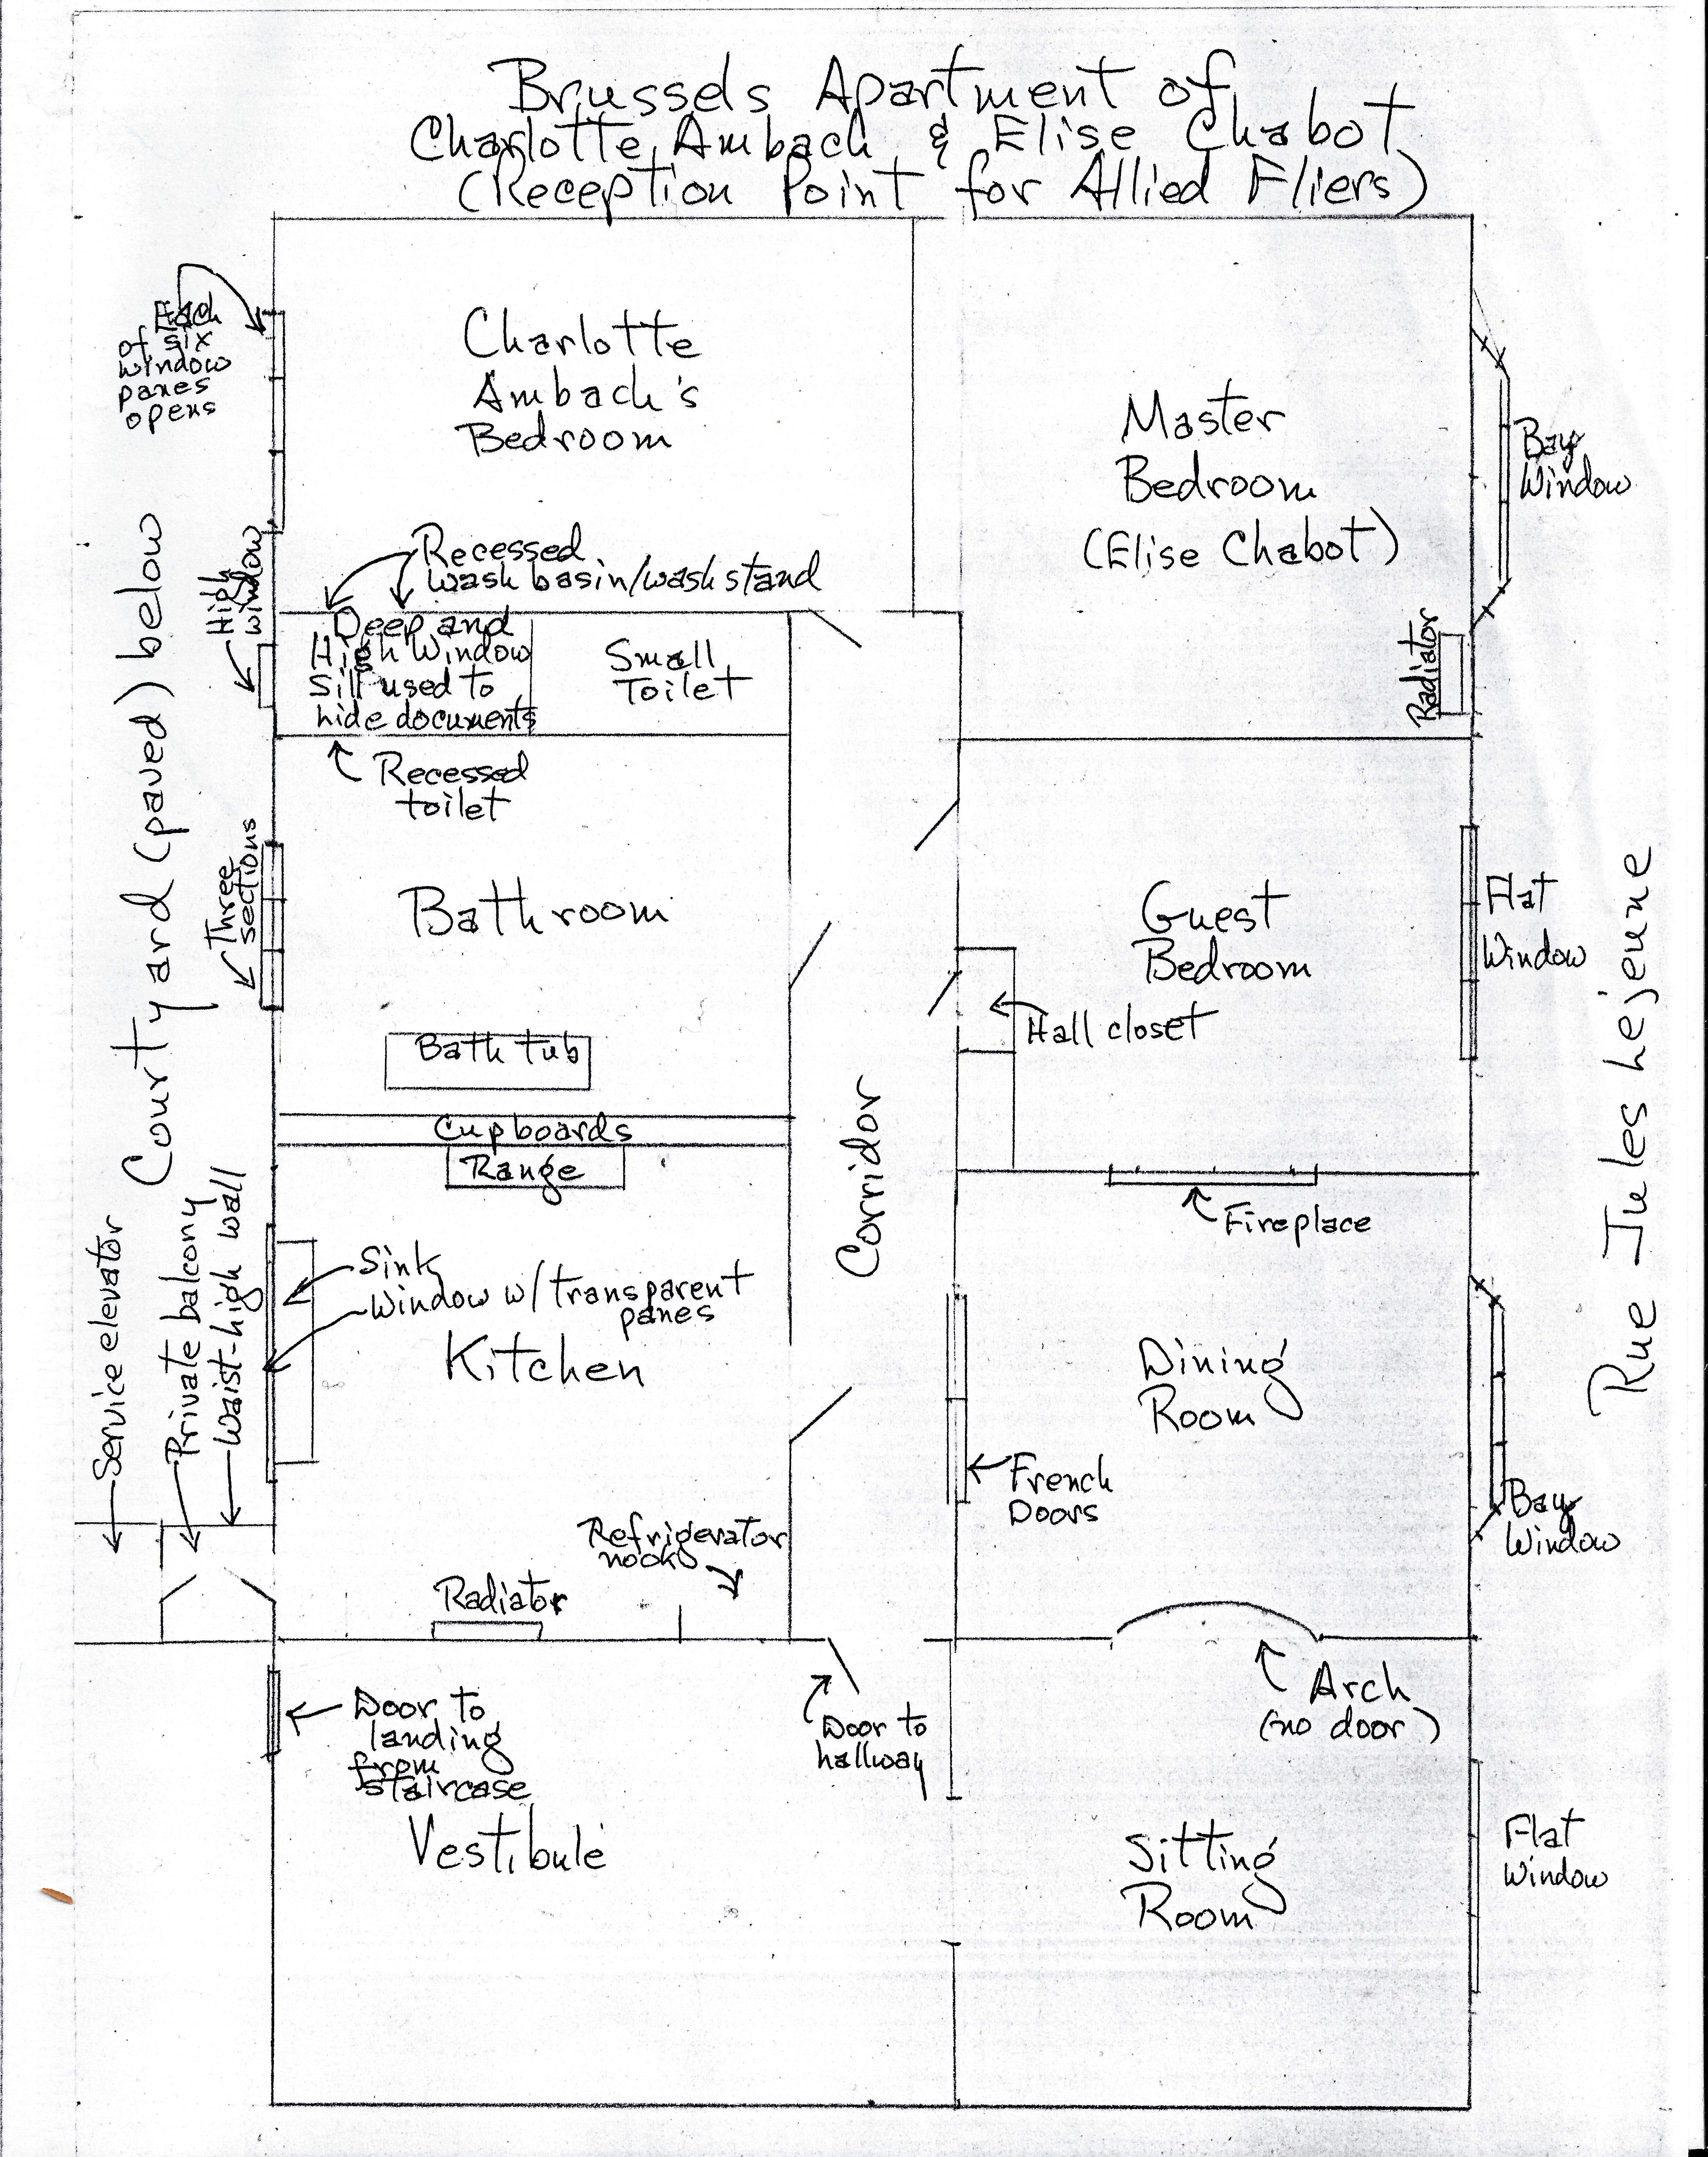 Brussels Apartment of
Charlotte Ambach & Elise Chabot
(Reception Point for Allied Fliers)
Each
of six
window
panes
opens
Charlotte
Ambach's
Bedroom
Master
Bedroom
(Elise Chabot)
Bay
Window
Radiator
High
window
Recessed
wash basin/wash stand
Deep and
High Window
Sill used to
hide documents
Small
Toilet
Recessed
toilet
Courtyard (paved) below
Three
sections
Bathroom
Bath tub
Guest
Bedroom
Hall closet
Flat
Window
Rue Jules Lejeune
Cupboards
Range
Corridor
Fireplace
Service elevator
Private balcony
Waist-high wall
Sink
Window w/transparent
panes
Kitchen
Dining
Room
French
Doors
Bay
Window
Refrigerator
nook
Radiator
Arch
(no door)
Door to
landing
from
staircase
Door to
hallway
Vestibule
Sitting
Room
Flat
Window